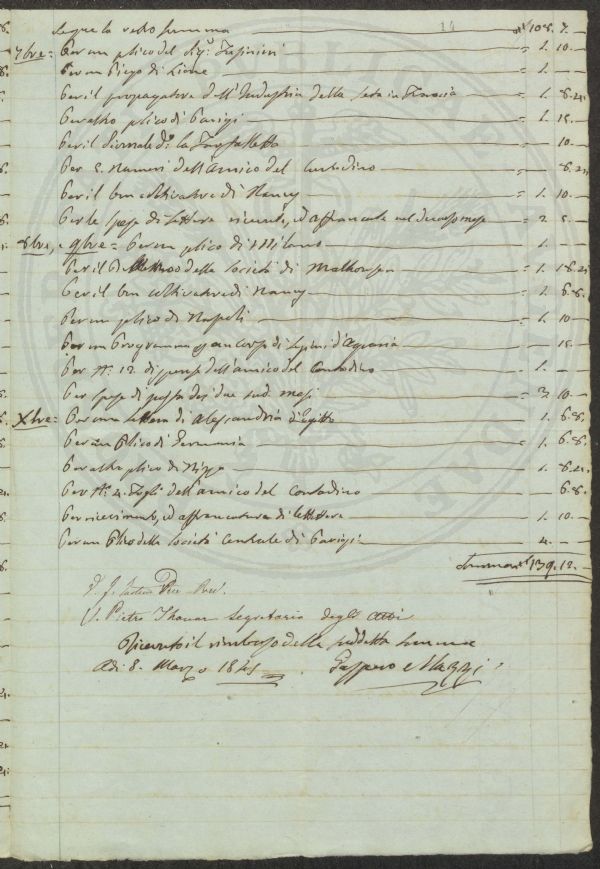 Segue la retro Somma 108. 7.
7bre = Per un plico del Sig. = 1. 10. -
Per un Piego di Lione = 1. -
Per il propagatore dell'Industria della seta in Francia = 1.
Per altro plico di Parigi = 1. 15. -
Per il Giornale la Farfalletta 10. -
Per 5. Numeri dell'Amico del Contadino
Per il bon cultivatore di Nancy = 1. 10.
Per le spese di lettere ricevute, ed affrancate nel decorso mese = 2. 5. -
8bre, e 9bre = Per un plico di Milano 1. -
Per il della Società di = 1.
Per il bon cultivatore di Nancy = 1. 6.8.
Per un plico di Napoli = 1. 10 -
Per un Programma di un Corso di d'Agraria 15. -
Per N.° 12. dell'amico del Contadino = 1. -
Per spese di posta dei due sud. mesi = 10. -
Xbre = Per una lettera di Alessandria d'Egitto 1. 6.8.
Per un Plico di Germania = 1. 6.8.
Per altro plico di Nizza = 1.
Per N.° 4. Fogli dell'amico del Contadino 6.8.
Per ricevimento, ed affrancatura di lettere 1. 10. -
Per un Plico della Società Centrale di Parigi 4. -
Somma 139. 12. -
Pietro Thouar Segretario degli Atti
Ricevuto il rimborso della suddetta Somma
Adì 8. Marzo 1845 Gaspero Mazzi